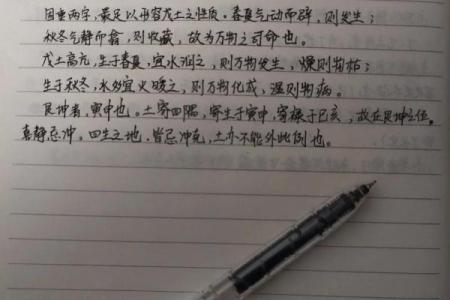 固重两字，最足以形容戊土之性质。春夏气动而辟，则发生；
秋冬气静而翕，则收藏，故为万物之司命也。
戊土高亢，生于春夏，宜水润之，则万物发生，燥则物枯；
生于秋冬，水多宜火暖之，则万物化成，湿则物病。
艮坤者，寅申也。土寄四隅，寄生于寅申，寄禄于巳亥，故在艮坤之位。
喜静忌冲。四生之地，皆忌冲克，土亦不能外此例也。